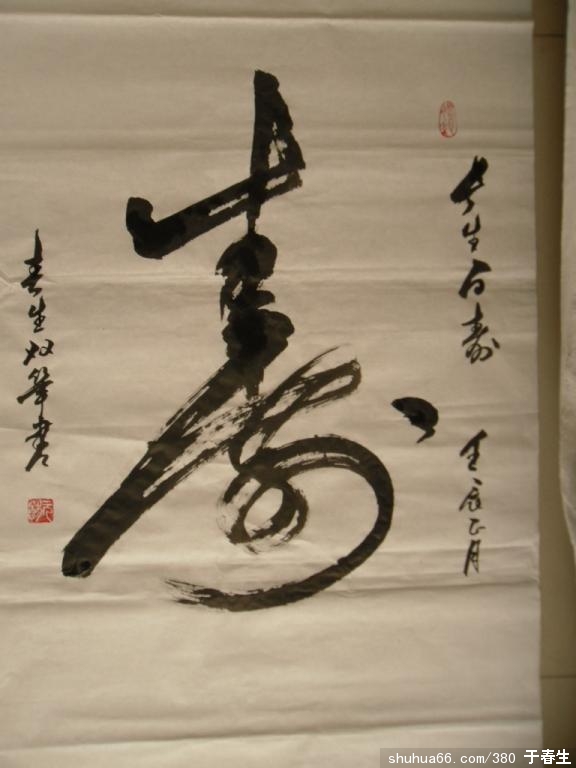 长生百寿
壬辰正月
寿
春生双笔书
shuhua66.com/380 于春生